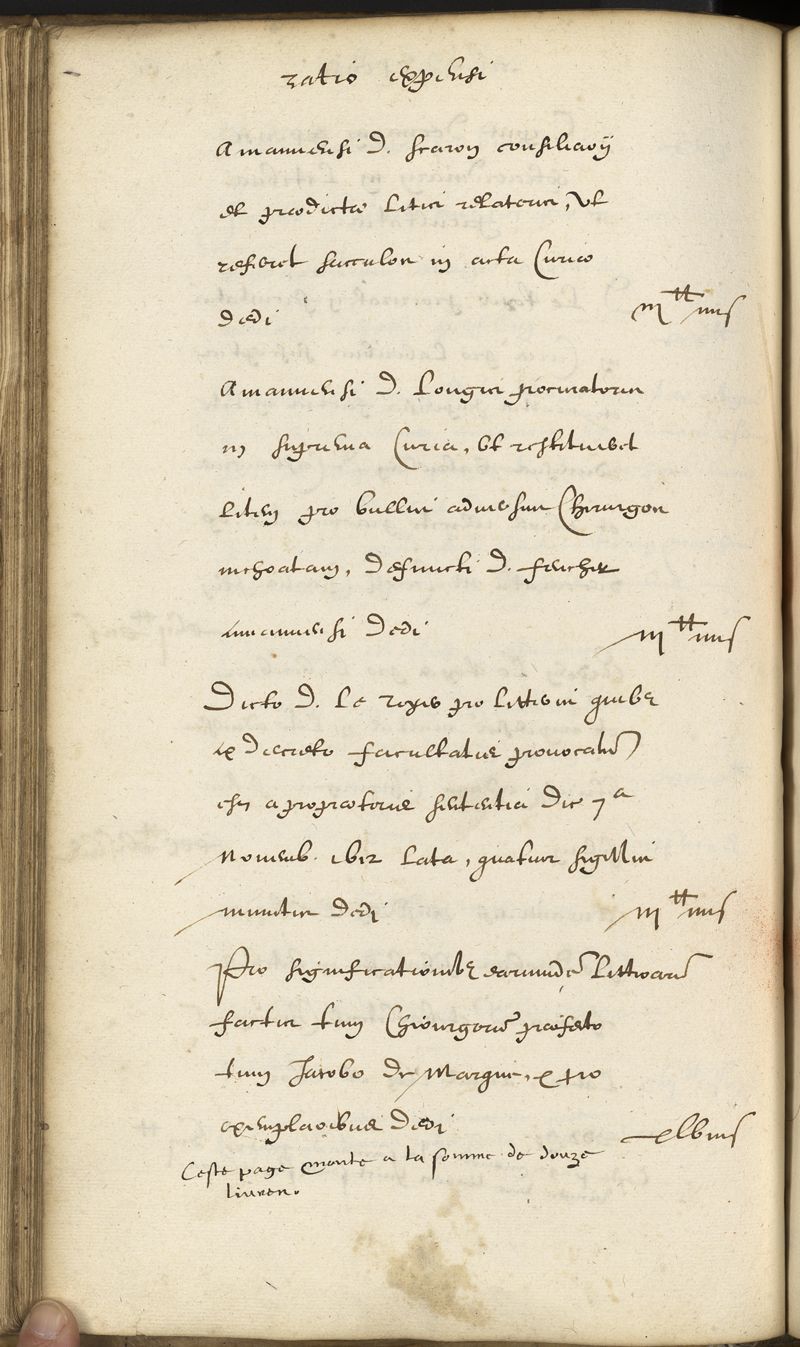 ratio expensi
Amanuensi D. Scaron consiliarij
et praedictae litis relatoris, ut
referret sacculos in acta Curiae
dedi
Amanuensi D. Longis procuratoris
in suprema Curia, ut restitueret
litem pro bullin adversus Chirurgos
inchoatam, defuncti D. feucher
amanuensi dedi
Dicto D. Le roye pro litteris quibus
ex decreto facultatis provocatum
est a propraetoris sententia die 7a
Novemb. 1612 lata, quatuor sigillis
munitis dedi
Pro significationibus earumdem litterarum
factis tum Chirurgorum praefecto
tum Jacobo de Marque, & pro
exemplaribus dedi
Ceste page monte a la somme de douze
livres.